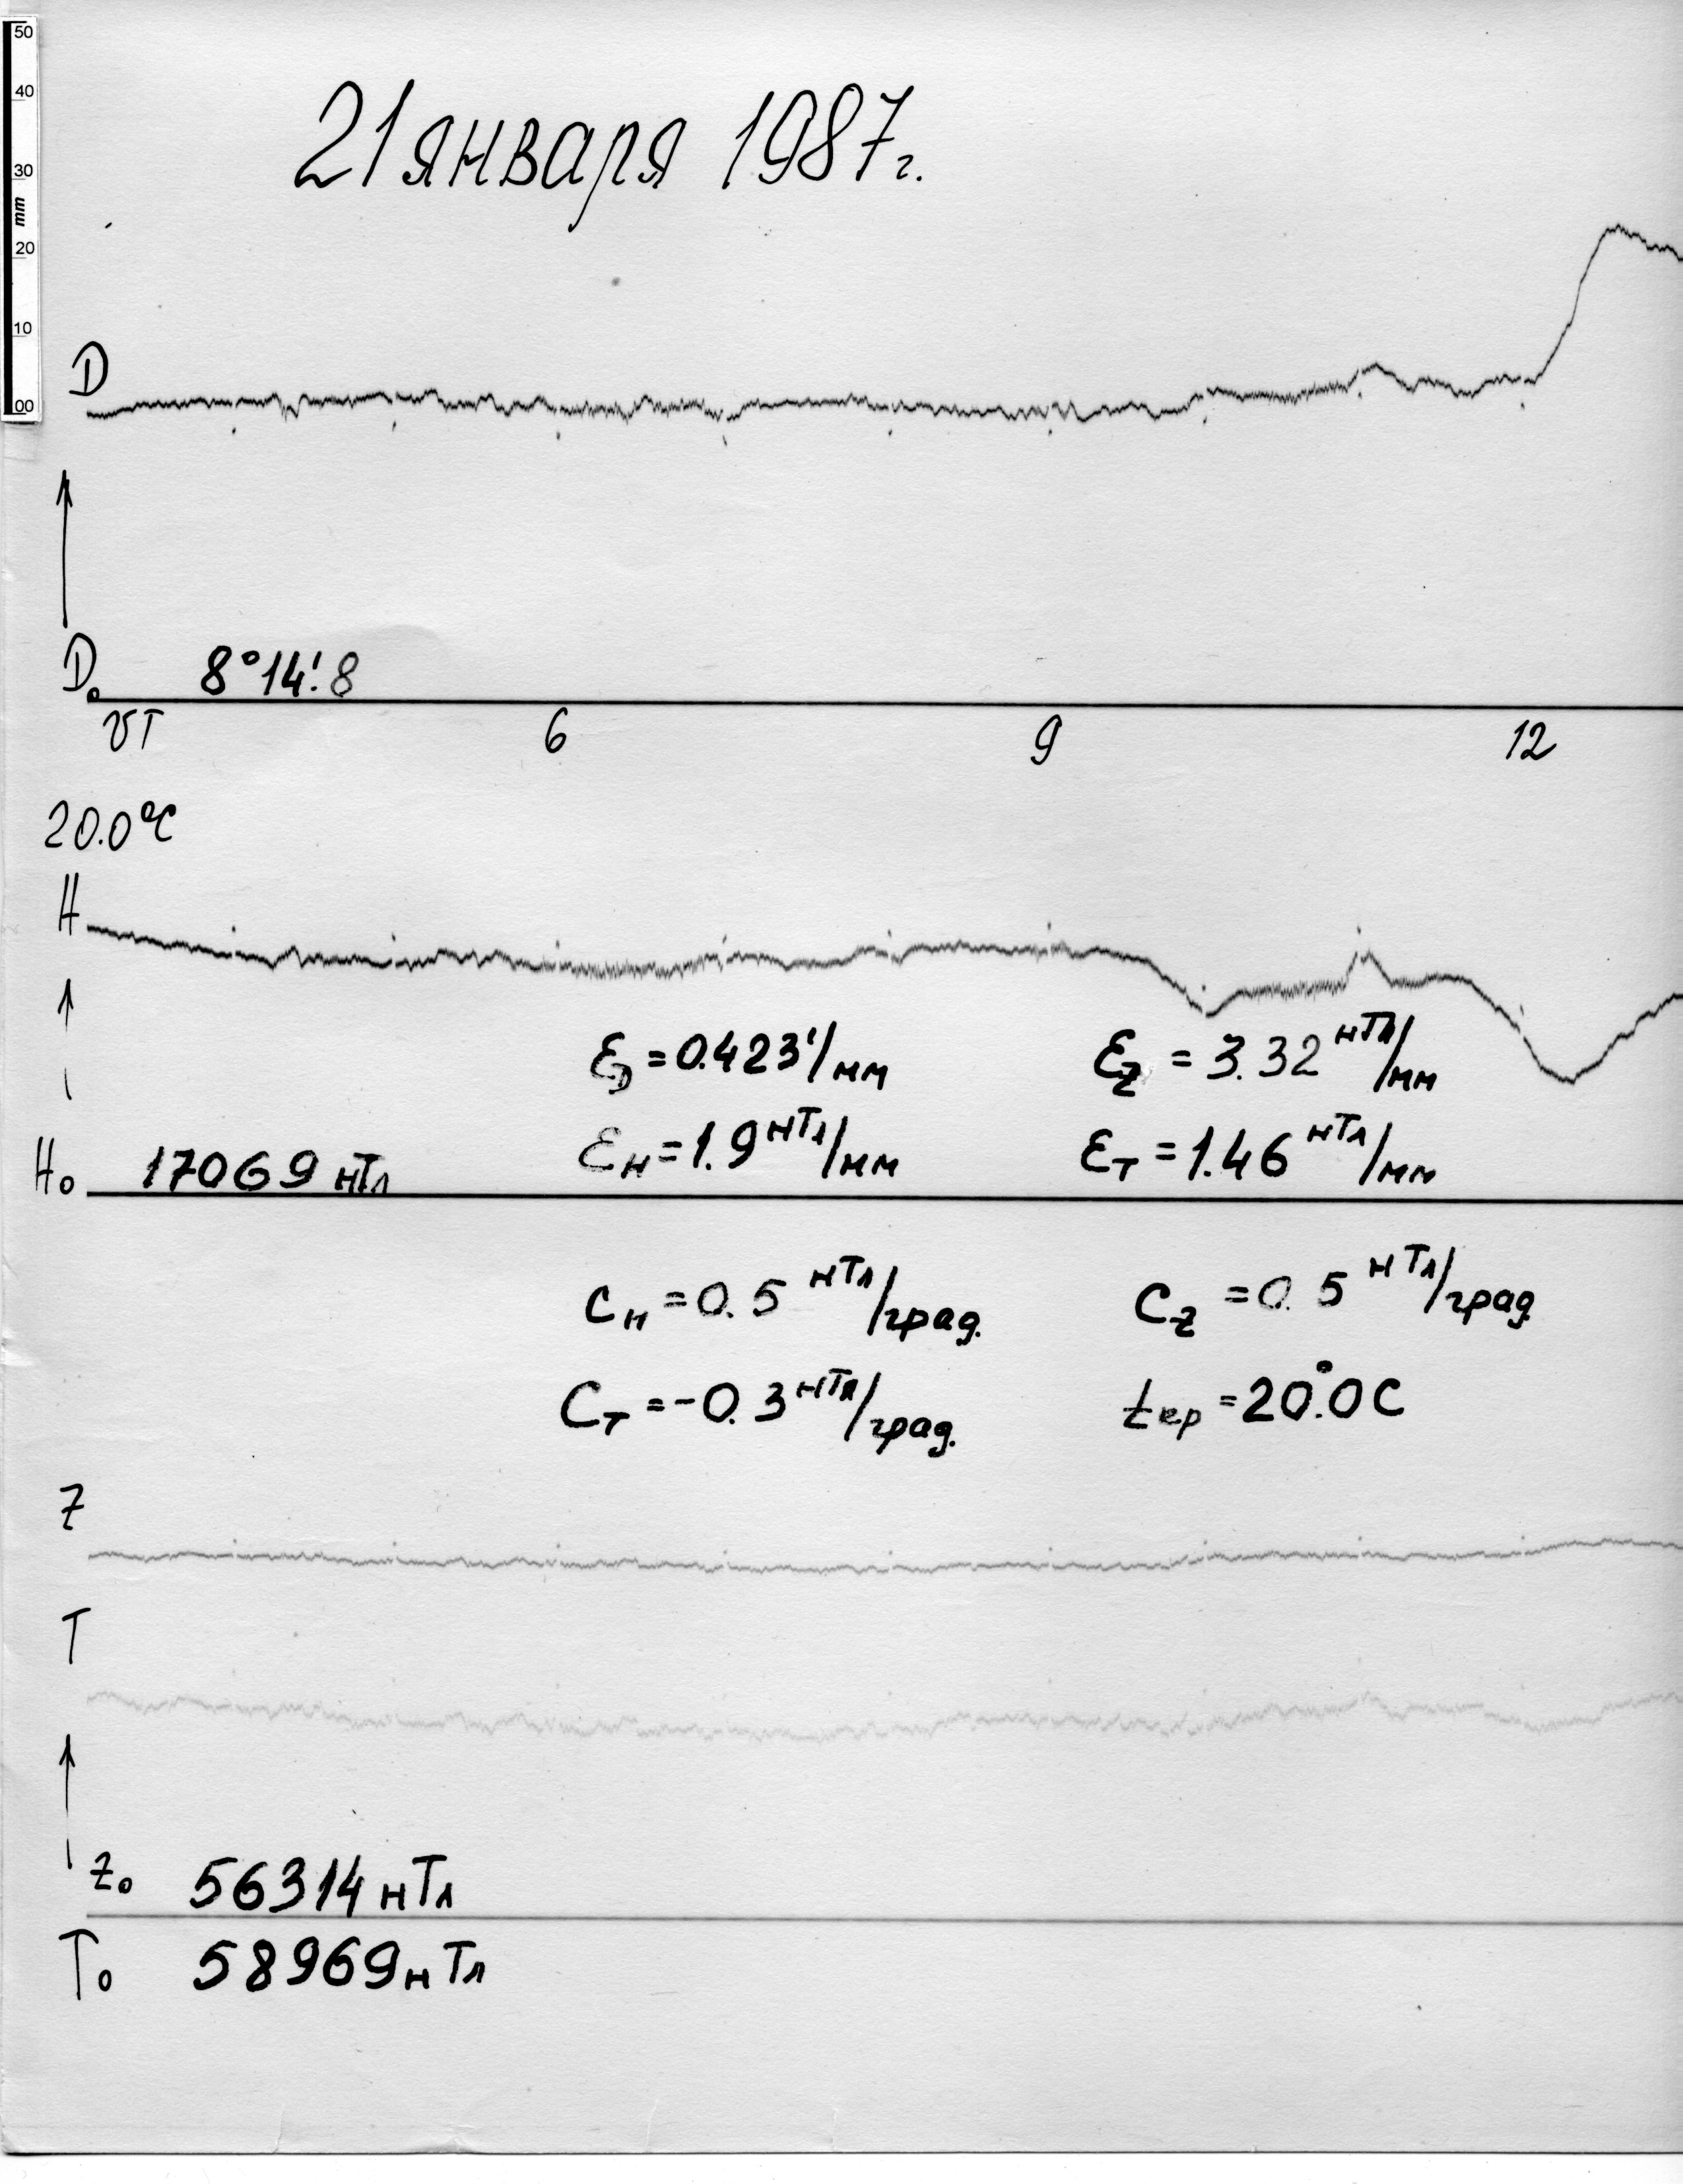 50
40
30
mm
20
10
00
21 января 1987г.
D
D₀ 8°14!8
UT 6 9 12
20.0°C
H
ε_D = 0.423'/мм ε_Z = 3.32 нТл/мм
H₀ 17069 нТл ε_H = 1.9 нТл/мм ε_T = 1.46 нТл/мм
C_H = 0.5 нТл/град. C_Z = 0.5 нТл/град.
C_T = -0.3 нТл/град. t_ср = 20°.0 C
Z
T
Z₀ 56314 нТл
T₀ 58969 нТл